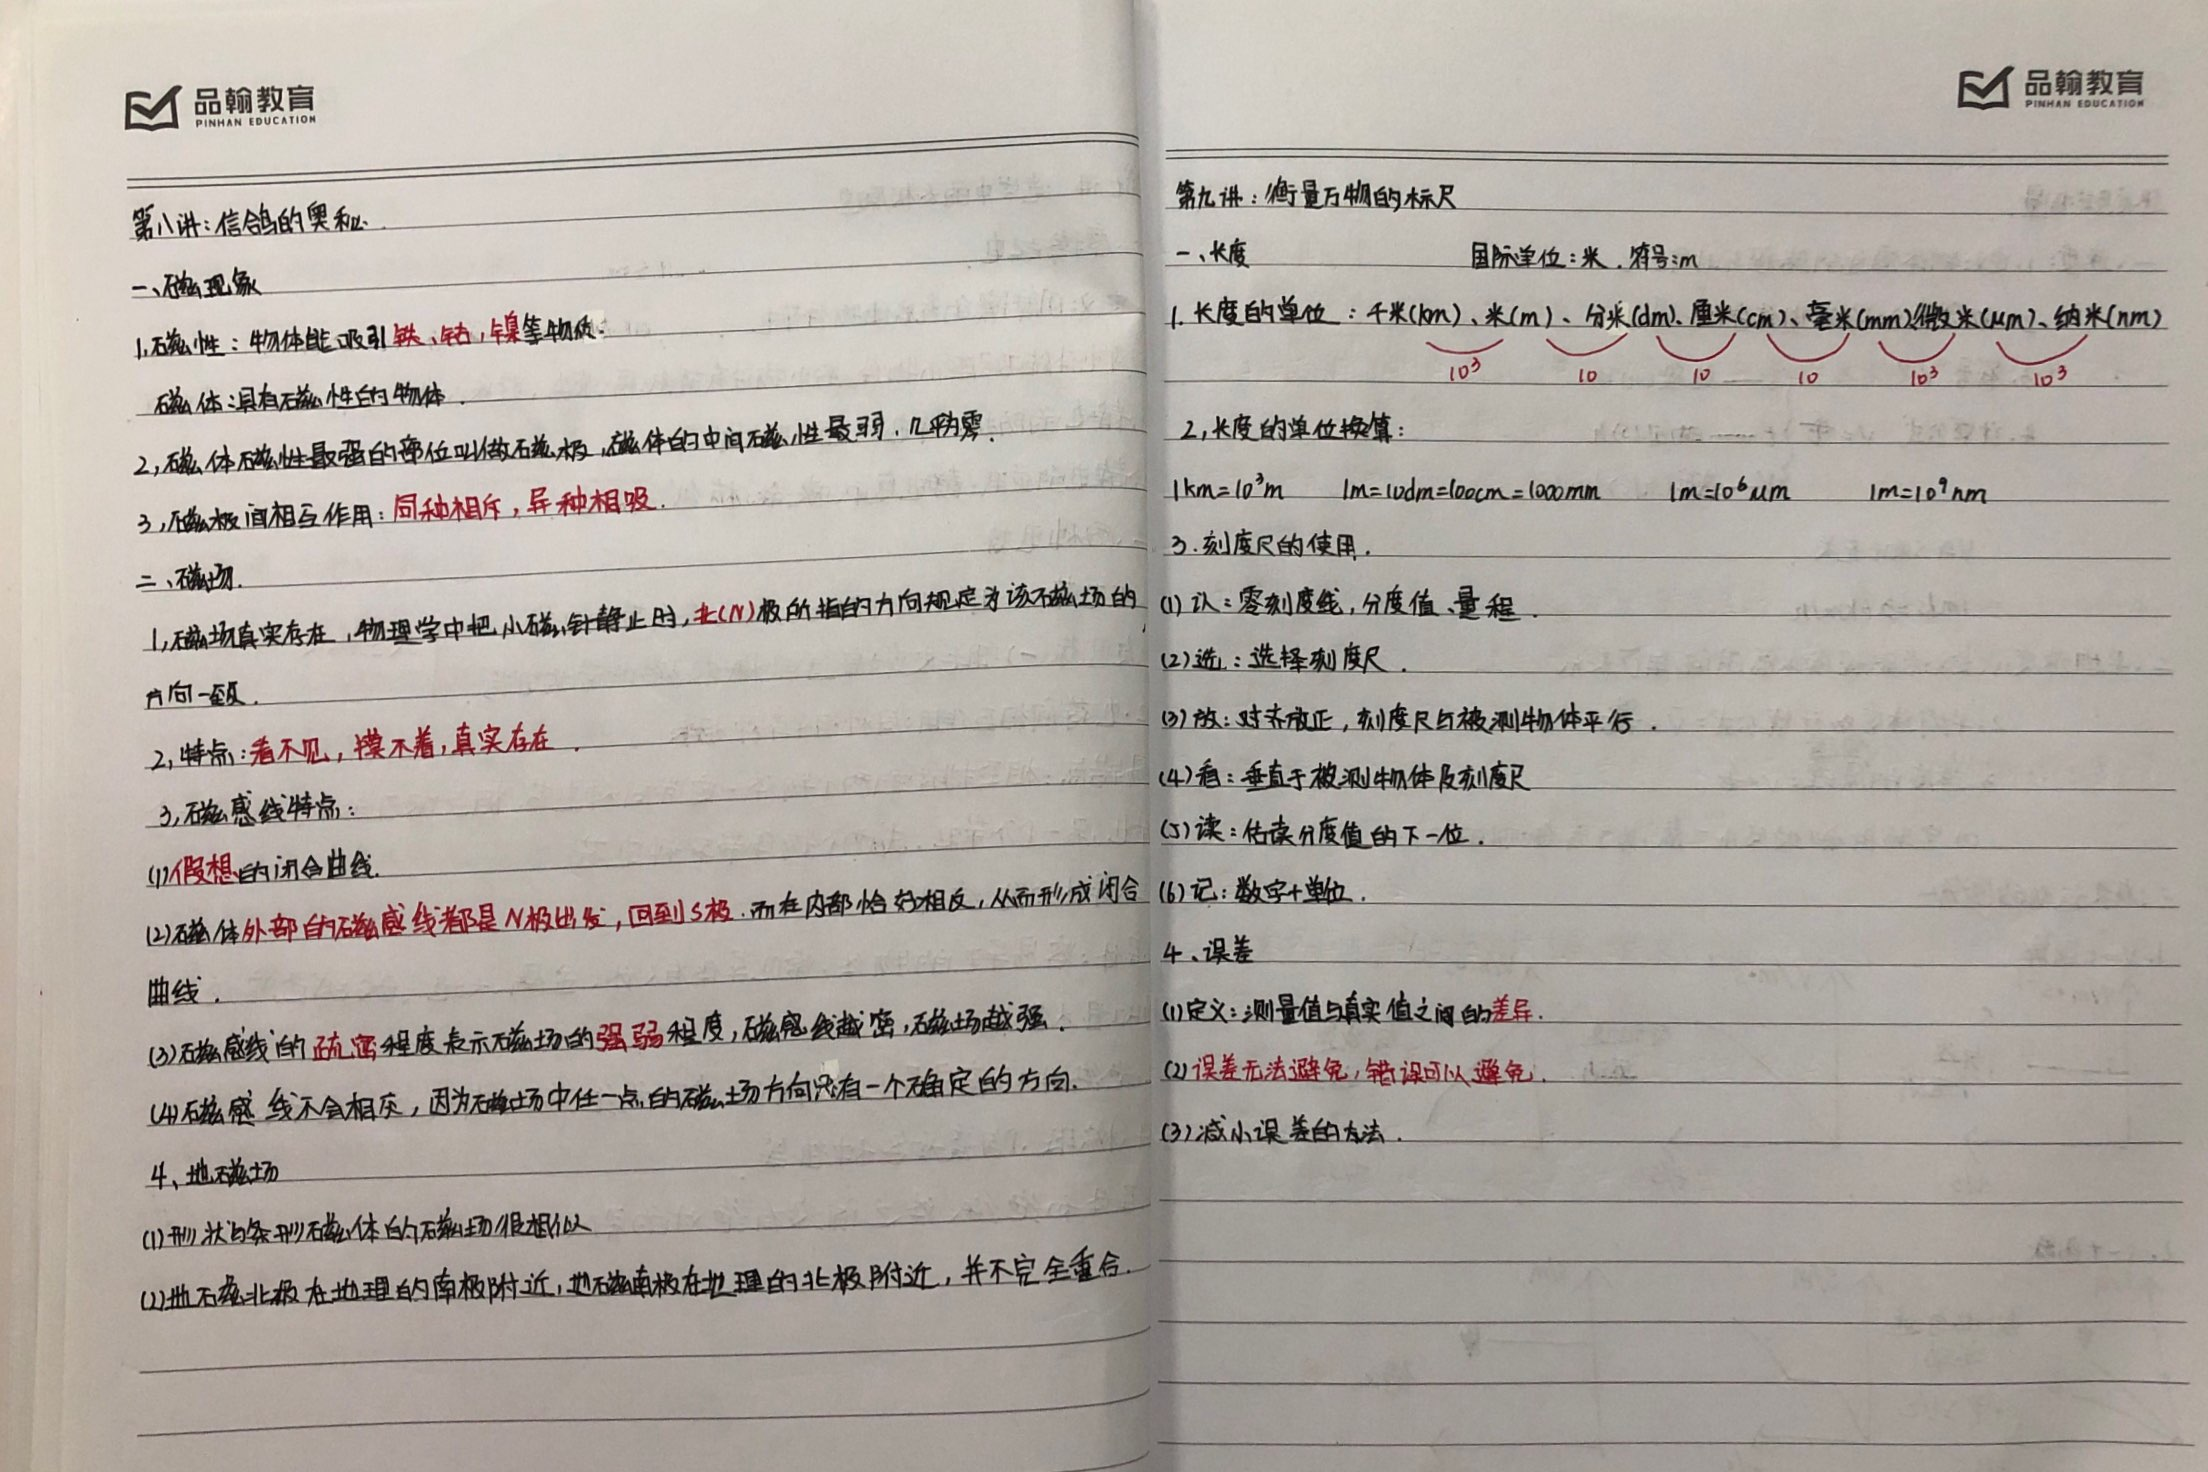 品翰教育
PINHAN EDUCATION
第八讲:信鸽的奥秘.
一、磁现象
1,磁性:物体能吸引铁、钴,镍等物质.
磁体:具有磁性的物体.
2,磁体磁性最强的部位叫做磁极,磁体的中间磁性最弱.几乎为零.
3,磁极间相互作用:同种相斥,异种相吸.
二、磁场.
1,磁场真实存在,物理学中把小磁针静止时,北(N)极所指的方向规定为该磁场的
方向一致.
2,特点:看不见,摸不着,真实存在.
3,磁感线特点:
(1)假想的闭合曲线.
(2)磁体外部的磁感线都是N极出发,回到S极.而在内部恰好相反,从而形成闭合
曲线.
(3)磁感线的疏密程度表示磁场的强弱程度,磁感线越密,磁场越强.
(4)磁感线不会相交,因为磁场中任一点的磁场方向只有一个确定的方向.
4、地磁场
(1)形状与条形磁体的磁场很相似
(2)地磁北极在地理的南极附近,地磁南极在地理的北极附近,并不完全重合.
品翰教育
PINHAN EDUCATION
第九讲:衡量万物的标尺
一、长度 国际单位:米.符号:m
1.长度的单位:千米(km)、米(m)、分米(dm)、厘米(cm)、毫米(mm)、微米(μm)、纳米(nm)
10³ 10 10 10 10³ 10³
2,长度的单位换算:
1km=10³m 1m=10dm=100cm=1000mm 1m=10⁶μm 1m=10⁹nm
3.刻度尺的使用.
(1)认:零刻度线,分度值、量程.
(2)选:选择刻度尺.
(3)放:对齐放正,刻度尺与被测物体平行.
(4)看:垂直于被测物体及刻度尺
(5)读:估读分度值的下一位.
(6)记:数字+单位.
4、误差
(1)定义:测量值与真实值之间的差异.
(2)误差无法避免,错误可以避免.
(3)减小误差的方法.